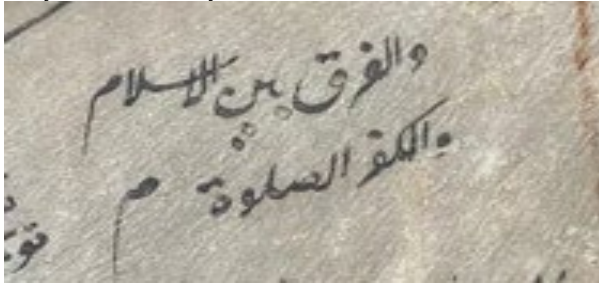 والفرق بين الاسلام
والكفر الصلوة م